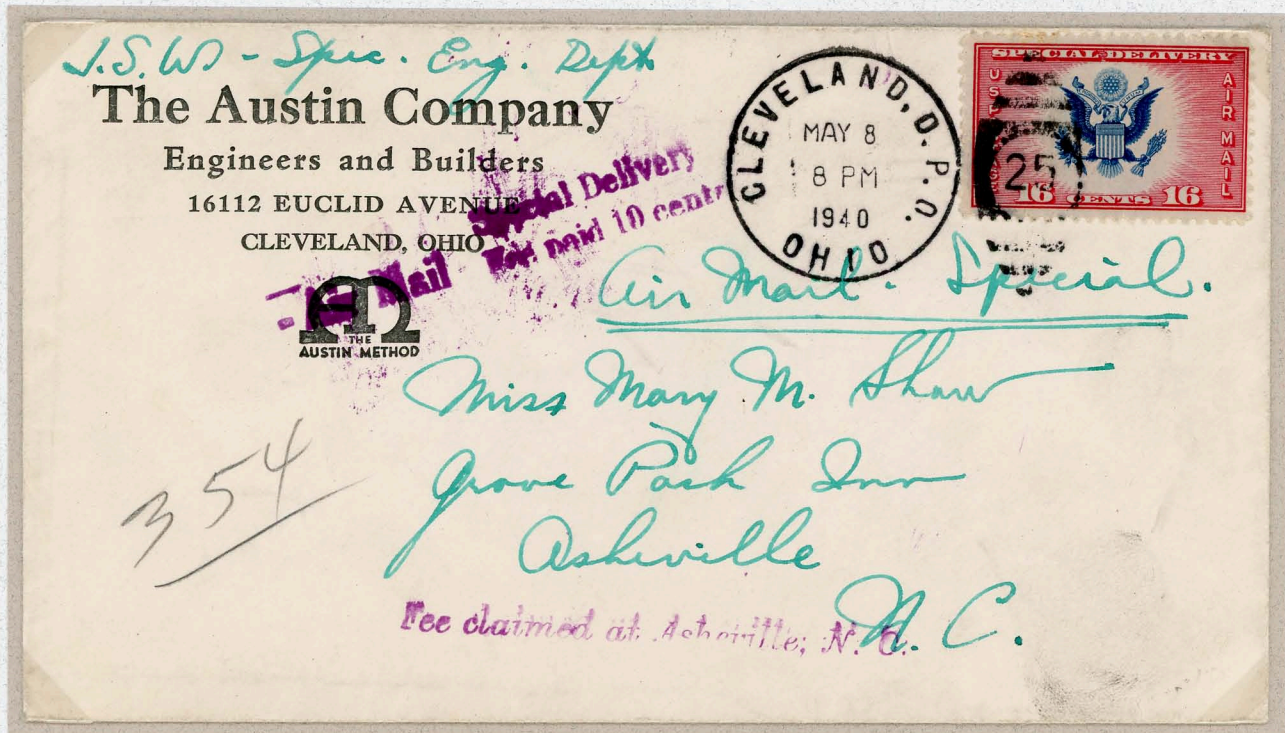 J.S.W. - Spec. Eng. Dept
The Austin Company
Engineers and Builders
16112 EUCLID AVENUE
CLEVELAND, OHIO
THE
AUSTIN METHOD
Special Delivery
Fee paid 10 cents
Air Mail
CLEVELAND, D.P.O.
MAY 8
8 PM
1940
OHIO
25
SPECIAL DELIVERY
AIR MAIL
16 CENTS 16
Air Mail. Special.
Miss Mary M. Shaw
Grove Park Inn
Asheville
N.C.
354
Fee claimed at Asheville, N. C.